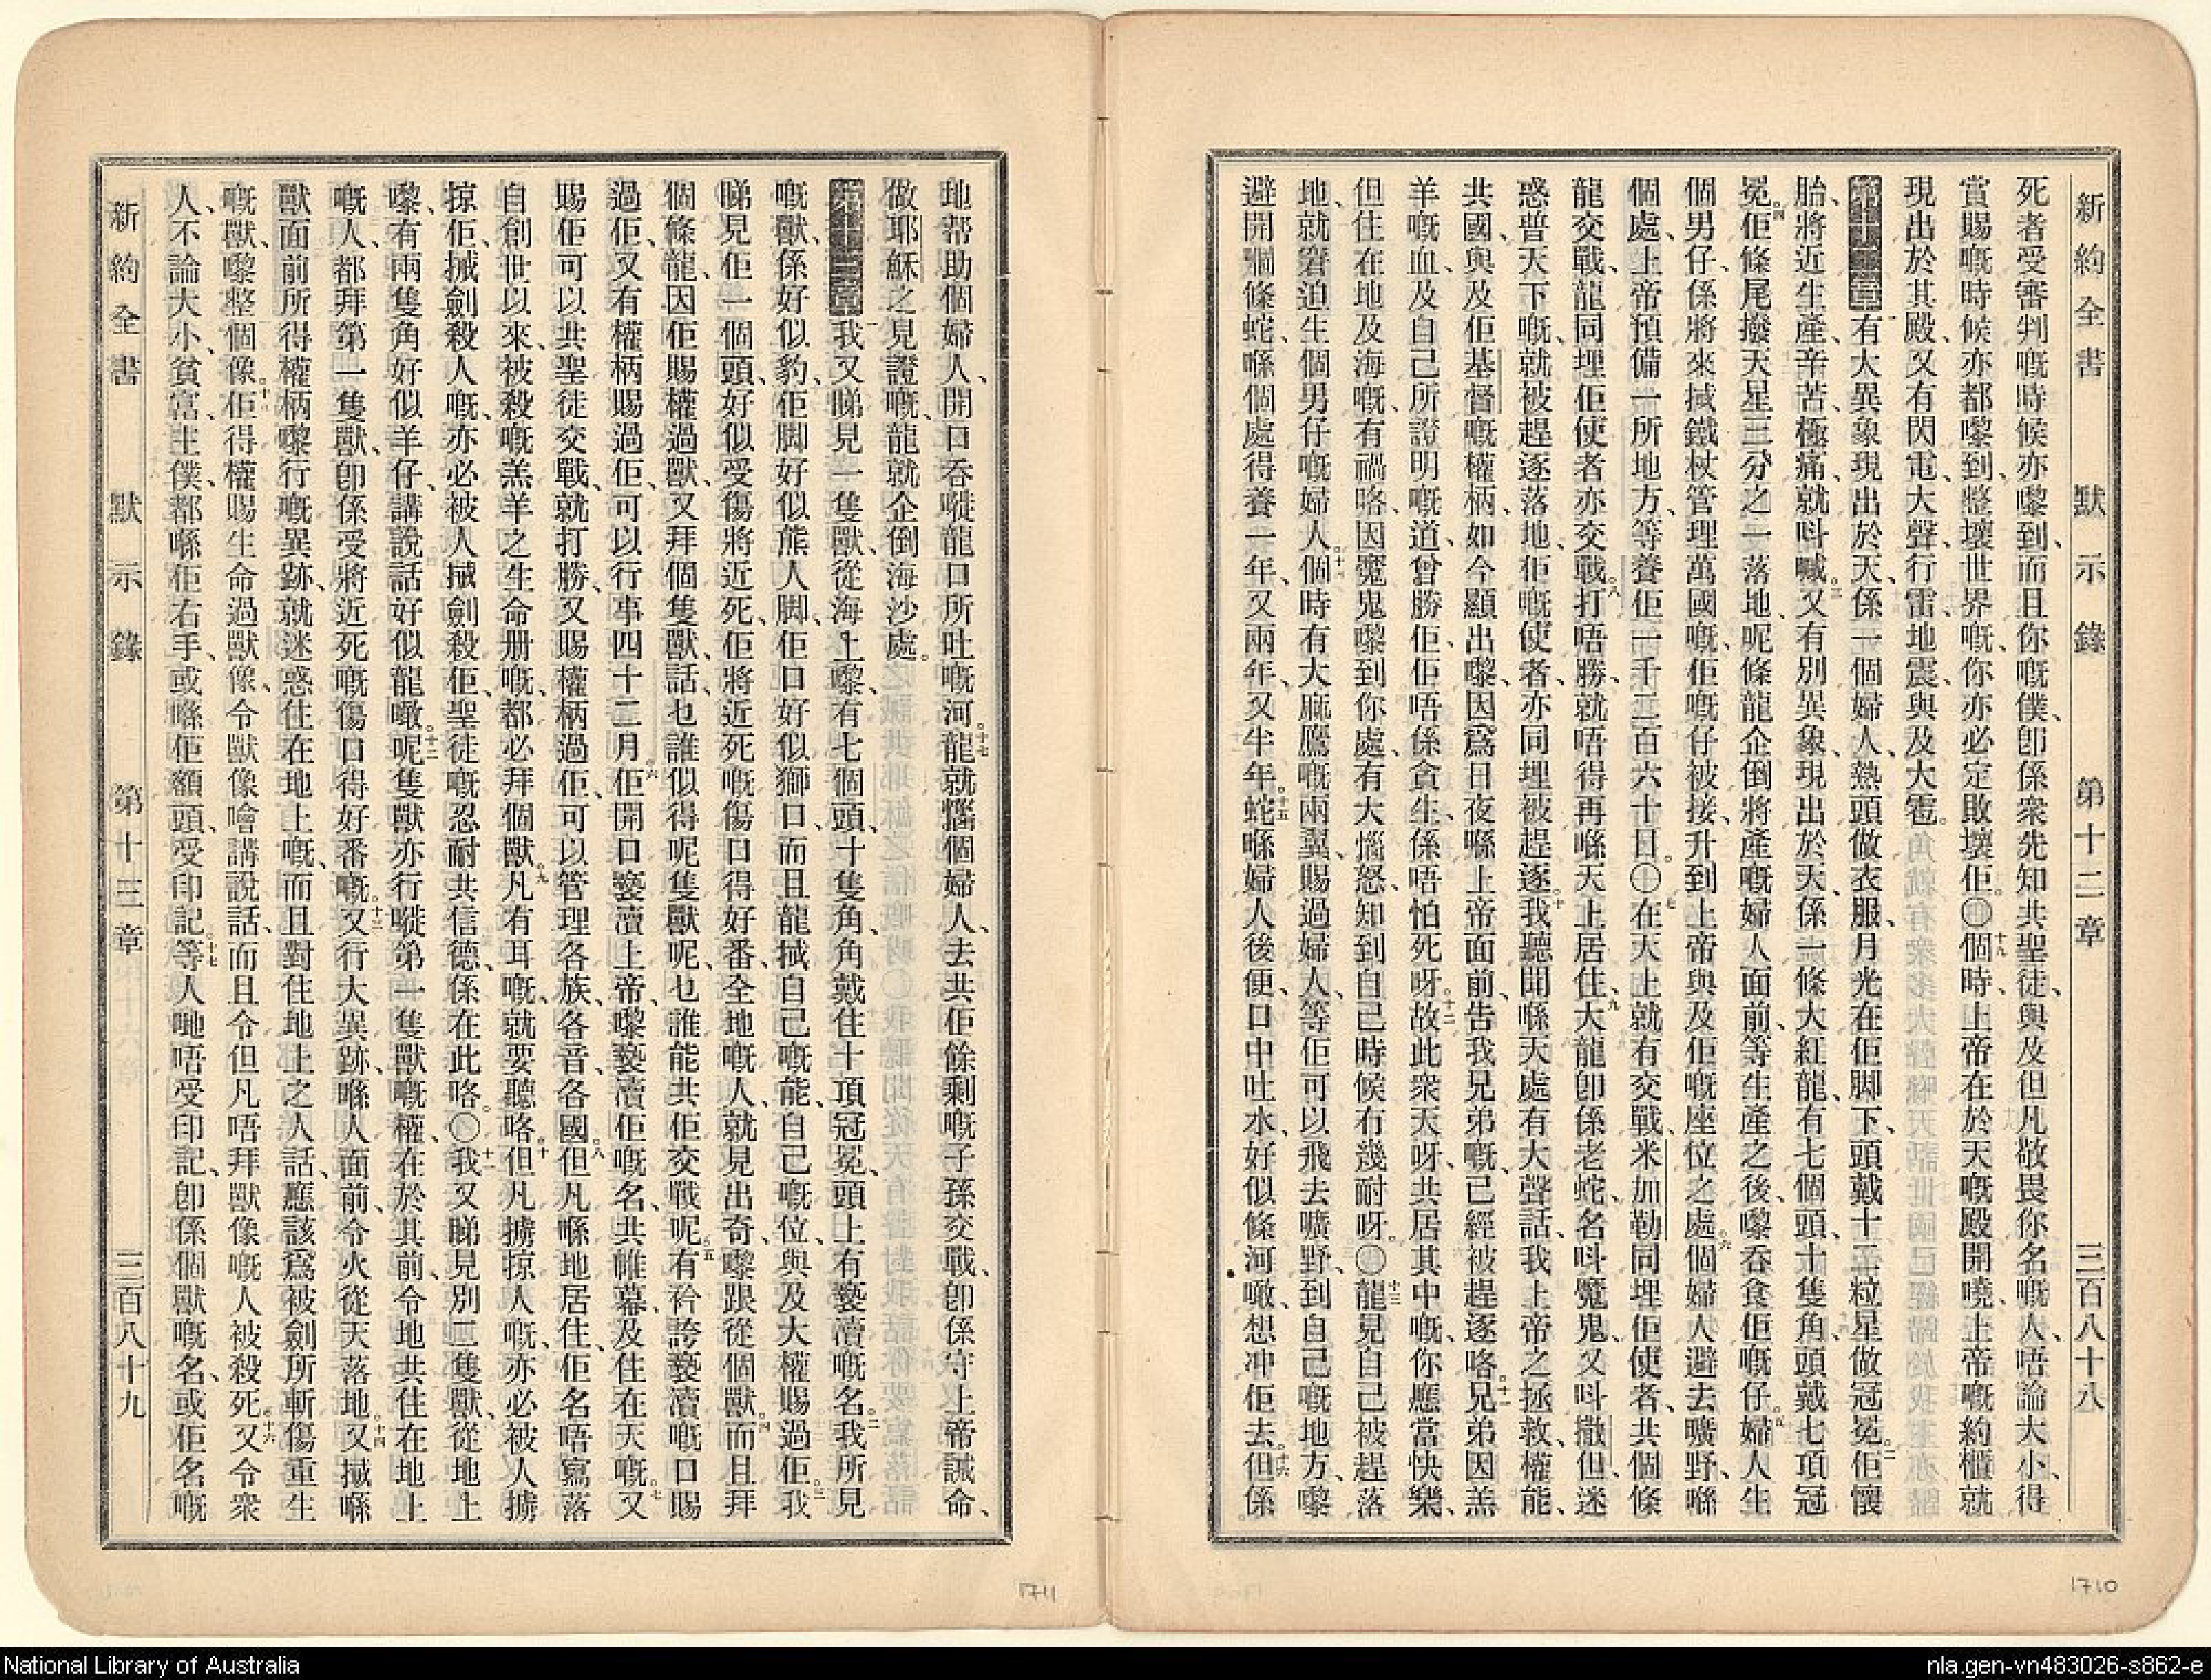 新約全書 默示錄 第十二章 三百八十八
死者受審判嘅時候亦嚟到、而且你嘅僕、卽係衆先知共聖徒、與及但凡敬畏你名嘅人、唔論大小、得
賞賜嘅時候亦都嚟到、整壞世界嘅、你亦必定敗壞佢。〇十九個時、上帝在於天嘅殿開曉、上帝嘅約櫃就
現出於其殿、又有閃電、大聲、行雷、地震、與及大雹。
第十二章一有大異象現出於天、係一個婦人、熱頭做衣服、月光在佢脚下、頭戴十二粒星做冠冕。二佢懷
胎、將近生產、辛苦極痛、就呌喊。三又有別異象、現出於天、係一條大紅龍、有七個頭、十隻角、頭戴七項冠
冕。四佢條尾撥天星三分之一落地、呢條龍企倒將產嘅婦人面前、等生產之後、嚟吞食佢嘅仔。五婦人生
個男仔、係將來搣鐵杖管理萬國嘅、佢嘅仔被接、升到上帝與及佢嘅座位之處。六個婦人避去曠野、喺
個處、上帝預備一所地方、等養佢一千二百六十日。〇七在天上就有交戰、米加勒同埋佢使者、共個條
龍交戰、龍同埋佢使者亦交戰。八打唔勝、就唔得再喺天上居住、九大龍卽係老蛇、名呌魔鬼、又呌撒但、迷
惑普天下嘅、就被趕逐落地、佢嘅使者、亦同埋被趕逐。十我聽聞喺天處有大聲話、我上帝之拯救、權能、
共國、與及佢基督嘅權柄、如今顯出嚟、因爲日夜喺上帝面前、告我兄弟嘅、已經被趕逐咯。十一兄弟因羔
羊嘅血、及自己所證明嘅道、曾勝佢、佢唔係貪生、係唔怕死呀。十二故此衆天呀、共居其中嘅、你應當快樂、
但住在地及海嘅、有禍咯、因魔鬼嚟到你處、有大惱怒、知到自己時候冇幾耐呀。〇十三龍見自己被趕落
地、就窘迫生個男仔嘅婦人。十四個時有大麻鷹嘅兩翼、賜過婦人、等佢可以飛去曠野、到自己嘅地方、嚟
避開嗰條蛇、喺個處得養一年、又兩年、又半年。十五蛇喺婦人後便、口中吐水、好似條河噉、想冲佢去。十六但係
地帮助個婦人、開口吞嘥龍口所吐嘅河。十七龍就惱個婦人、去共佢餘剩嘅子孫交戰、卽係守上帝誡命、
做耶穌之見證嘅、龍就企倒海沙處。
第十三章一我又睇見一隻獸、從海上嚟、有七個頭、十隻角、角戴住十項冠冕、頭上有褻瀆嘅名。二我所見
嘅獸、係好似豹、佢脚好似熊人脚、佢口好似獅口、而且龍搣自己嘅能、自己嘅位、與及大權賜過佢。三我
睇見佢一個頭、好似受傷將近死、佢將近死嘅傷口得好番、全地嘅人、就見出奇、嚟跟從個獸。四而且拜
個條龍、因佢賜權過獸、又拜個隻獸、話、乜誰似得呢隻獸呢、乜誰能共佢交戰呢。五有衿誇褻瀆嘅口賜
過佢、又有權柄賜過佢、可以行事四十二月。六佢開口褻瀆上帝、嚟褻瀆佢嘅名、共帷幕、及住在天嘅。七又
賜佢可以共聖徒交戰、就打勝、又賜權柄過佢、可以管理各族、各音、各國。八但凡喺地居住、佢名唔寫落
自創世以來、被殺嘅羔羊之生命册嘅、都必拜個獸。九凡有耳嘅、就要聽咯。十但凡擄掠人嘅、亦必被人擄
掠佢、搣劍殺人嘅、亦必被人搣劍殺佢、聖徒嘅忍耐共信德、係在此咯。〇十一我又睇見別二隻獸、從地上
嚟、有兩隻角好似羊仔、講說話好似龍噉。十二呢隻獸亦行嘥第一隻獸嘅權、在於其前、令地共住在地上
嘅人、都拜第一隻獸、卽係受將近死嘅傷口得好番嘅。十三又行大異跡、喺人面前、令火從天落地。十四又搣喺
獸面前所得權柄嚟行嘅異跡、就迷惑住在地上嘅、而且對住地上之人話、應該爲被劍所斬傷重生
嘅獸、嚟整個像。十五佢得權賜生命過獸像、令獸像噲講說話、而且令但凡唔拜獸像嘅人被殺死。十六又令衆
人、不論大小、貧富、主僕、都喺佢右手、或喺佢額頭、受印記。十七等人哋唔受印記、卽係個獸嘅名、或佢名嘅
新約全書 默示錄 第十三章 三百八十九
1711
1710
National Library of Australia
nla.gen-vn483026-s862-e